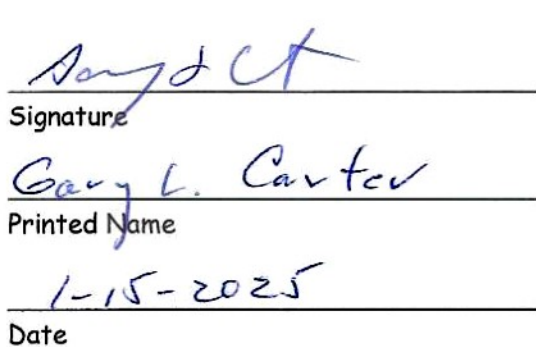 Signature
Gary L. Carter
Printed Name
1-15-2025
Date